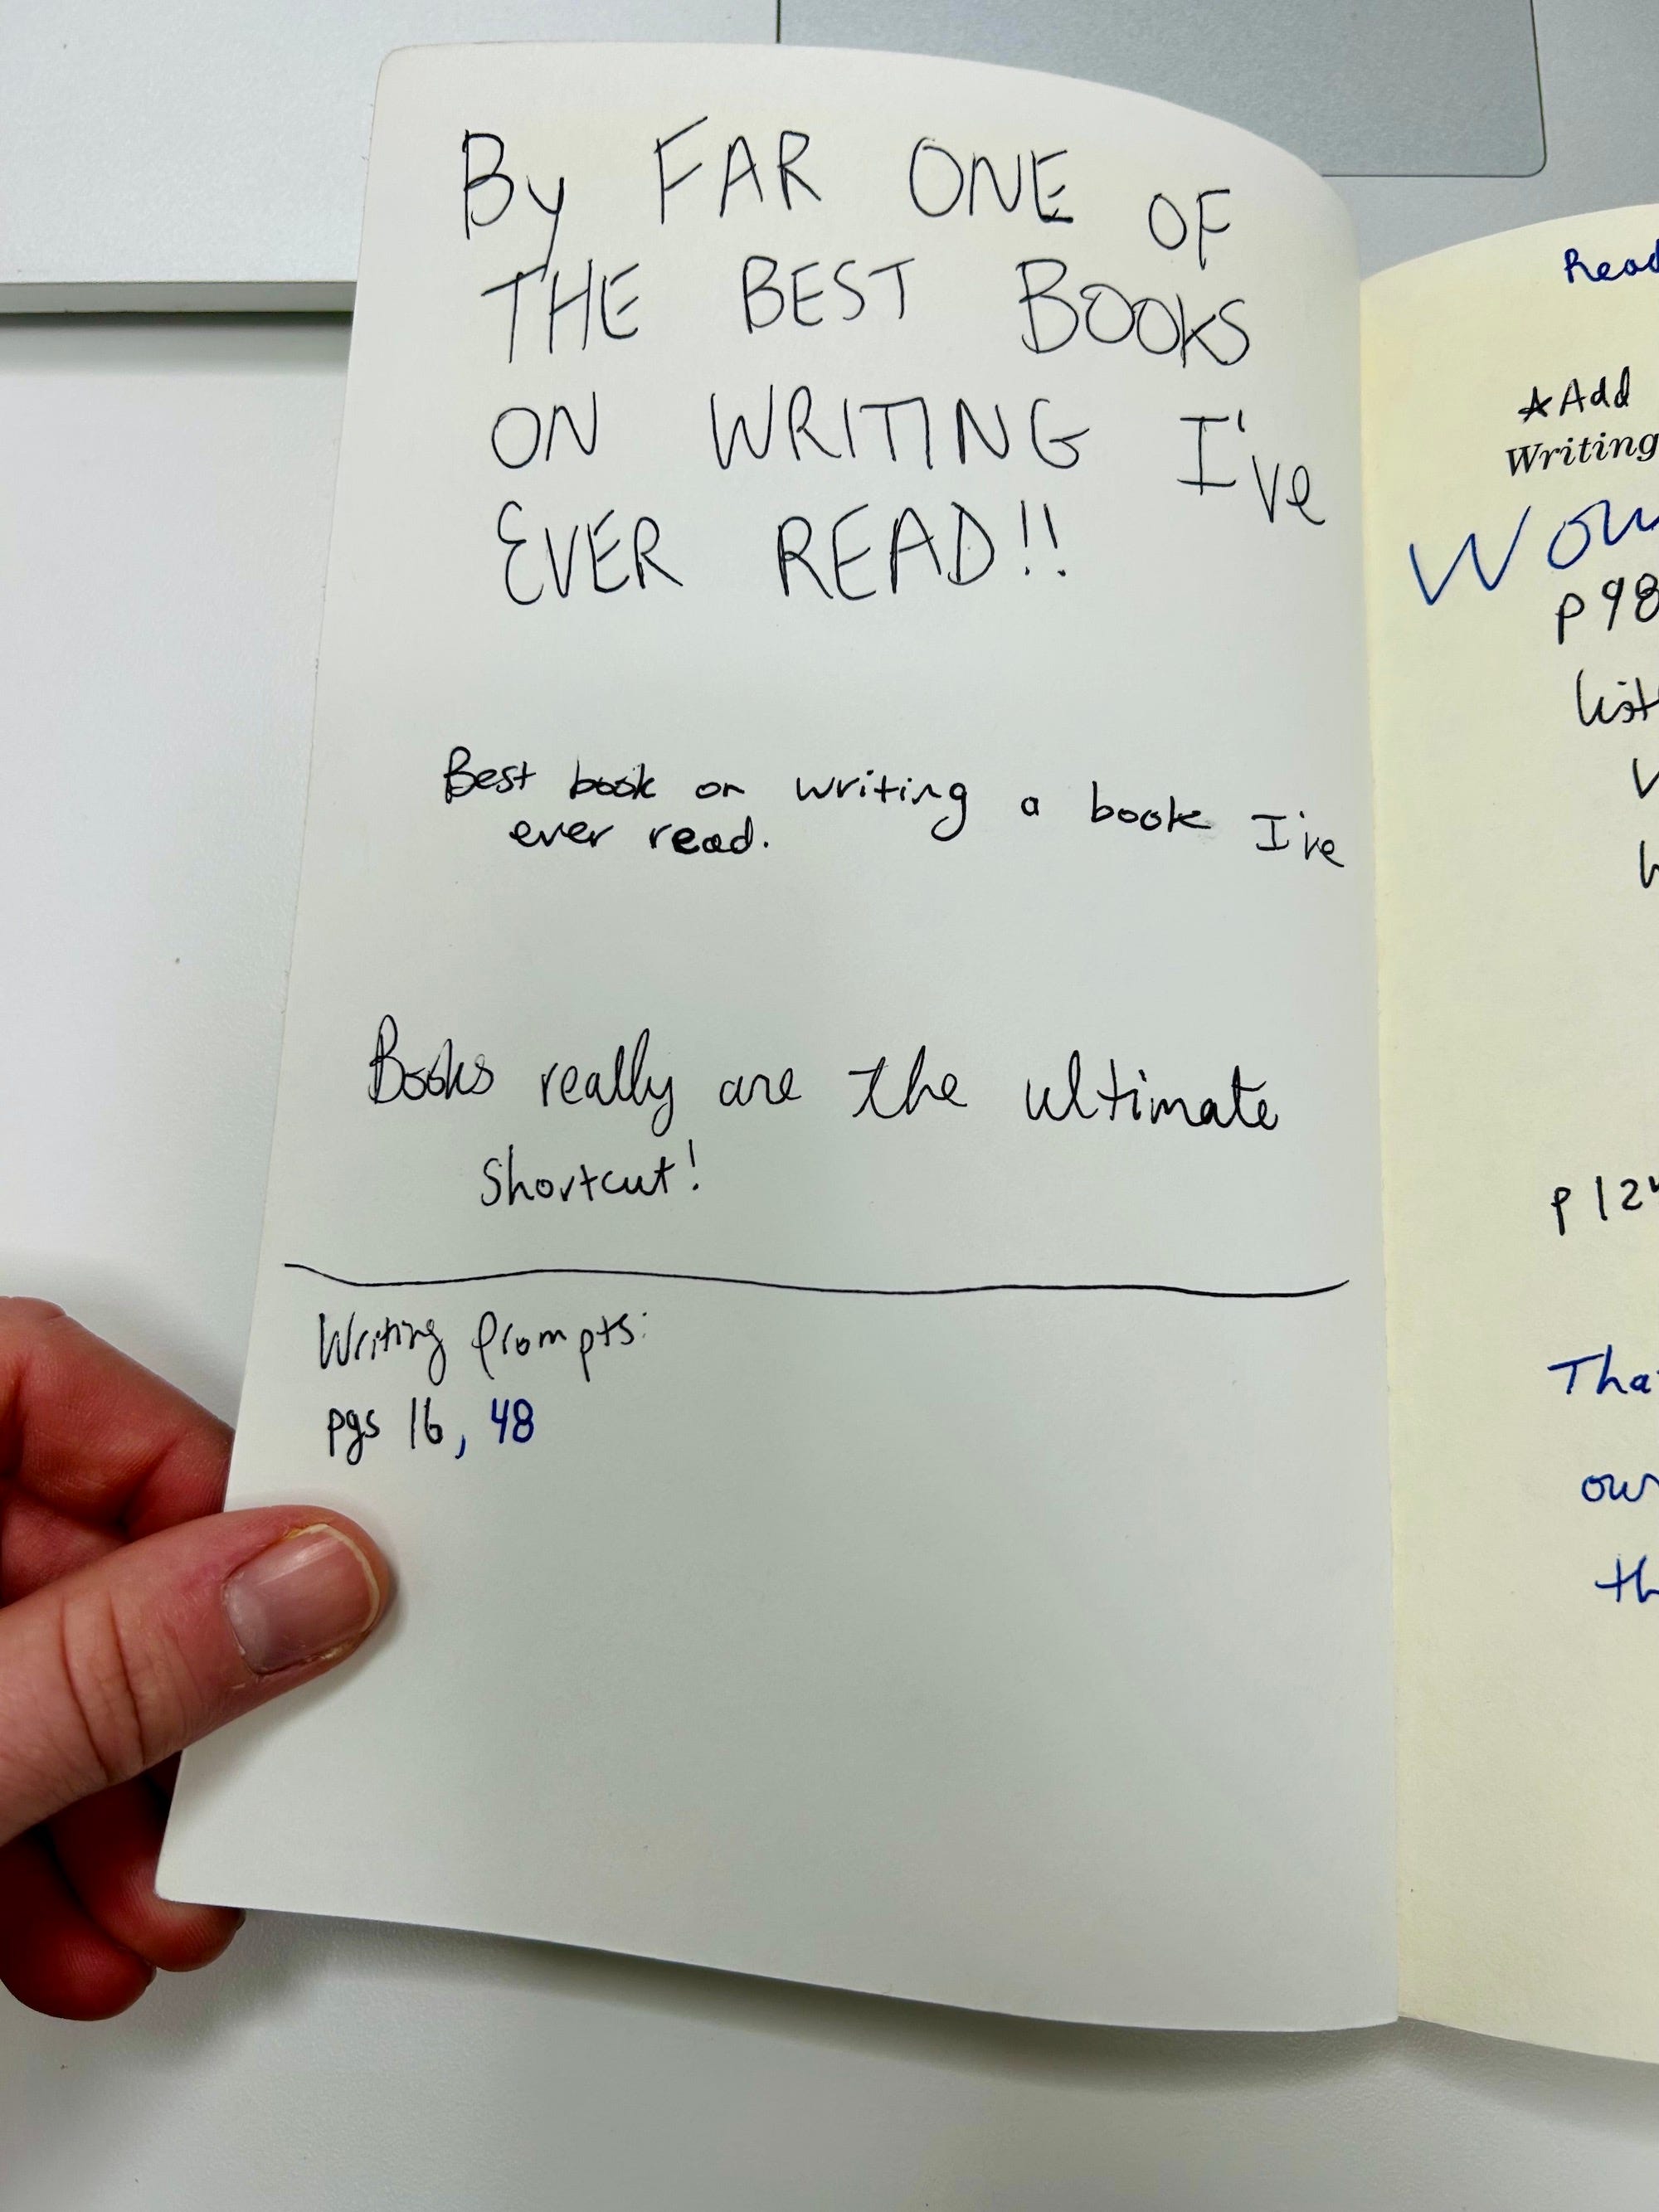 By FAR ONE OF
THE BEST BOOKS
ON WRITING I've
EVER READ!!
Best book on writing a book I've
ever read.
Books really are the ultimate
shortcut!
Writing Prompts:
pgs 16, 48
Read
*Add
Writing
p 98
list